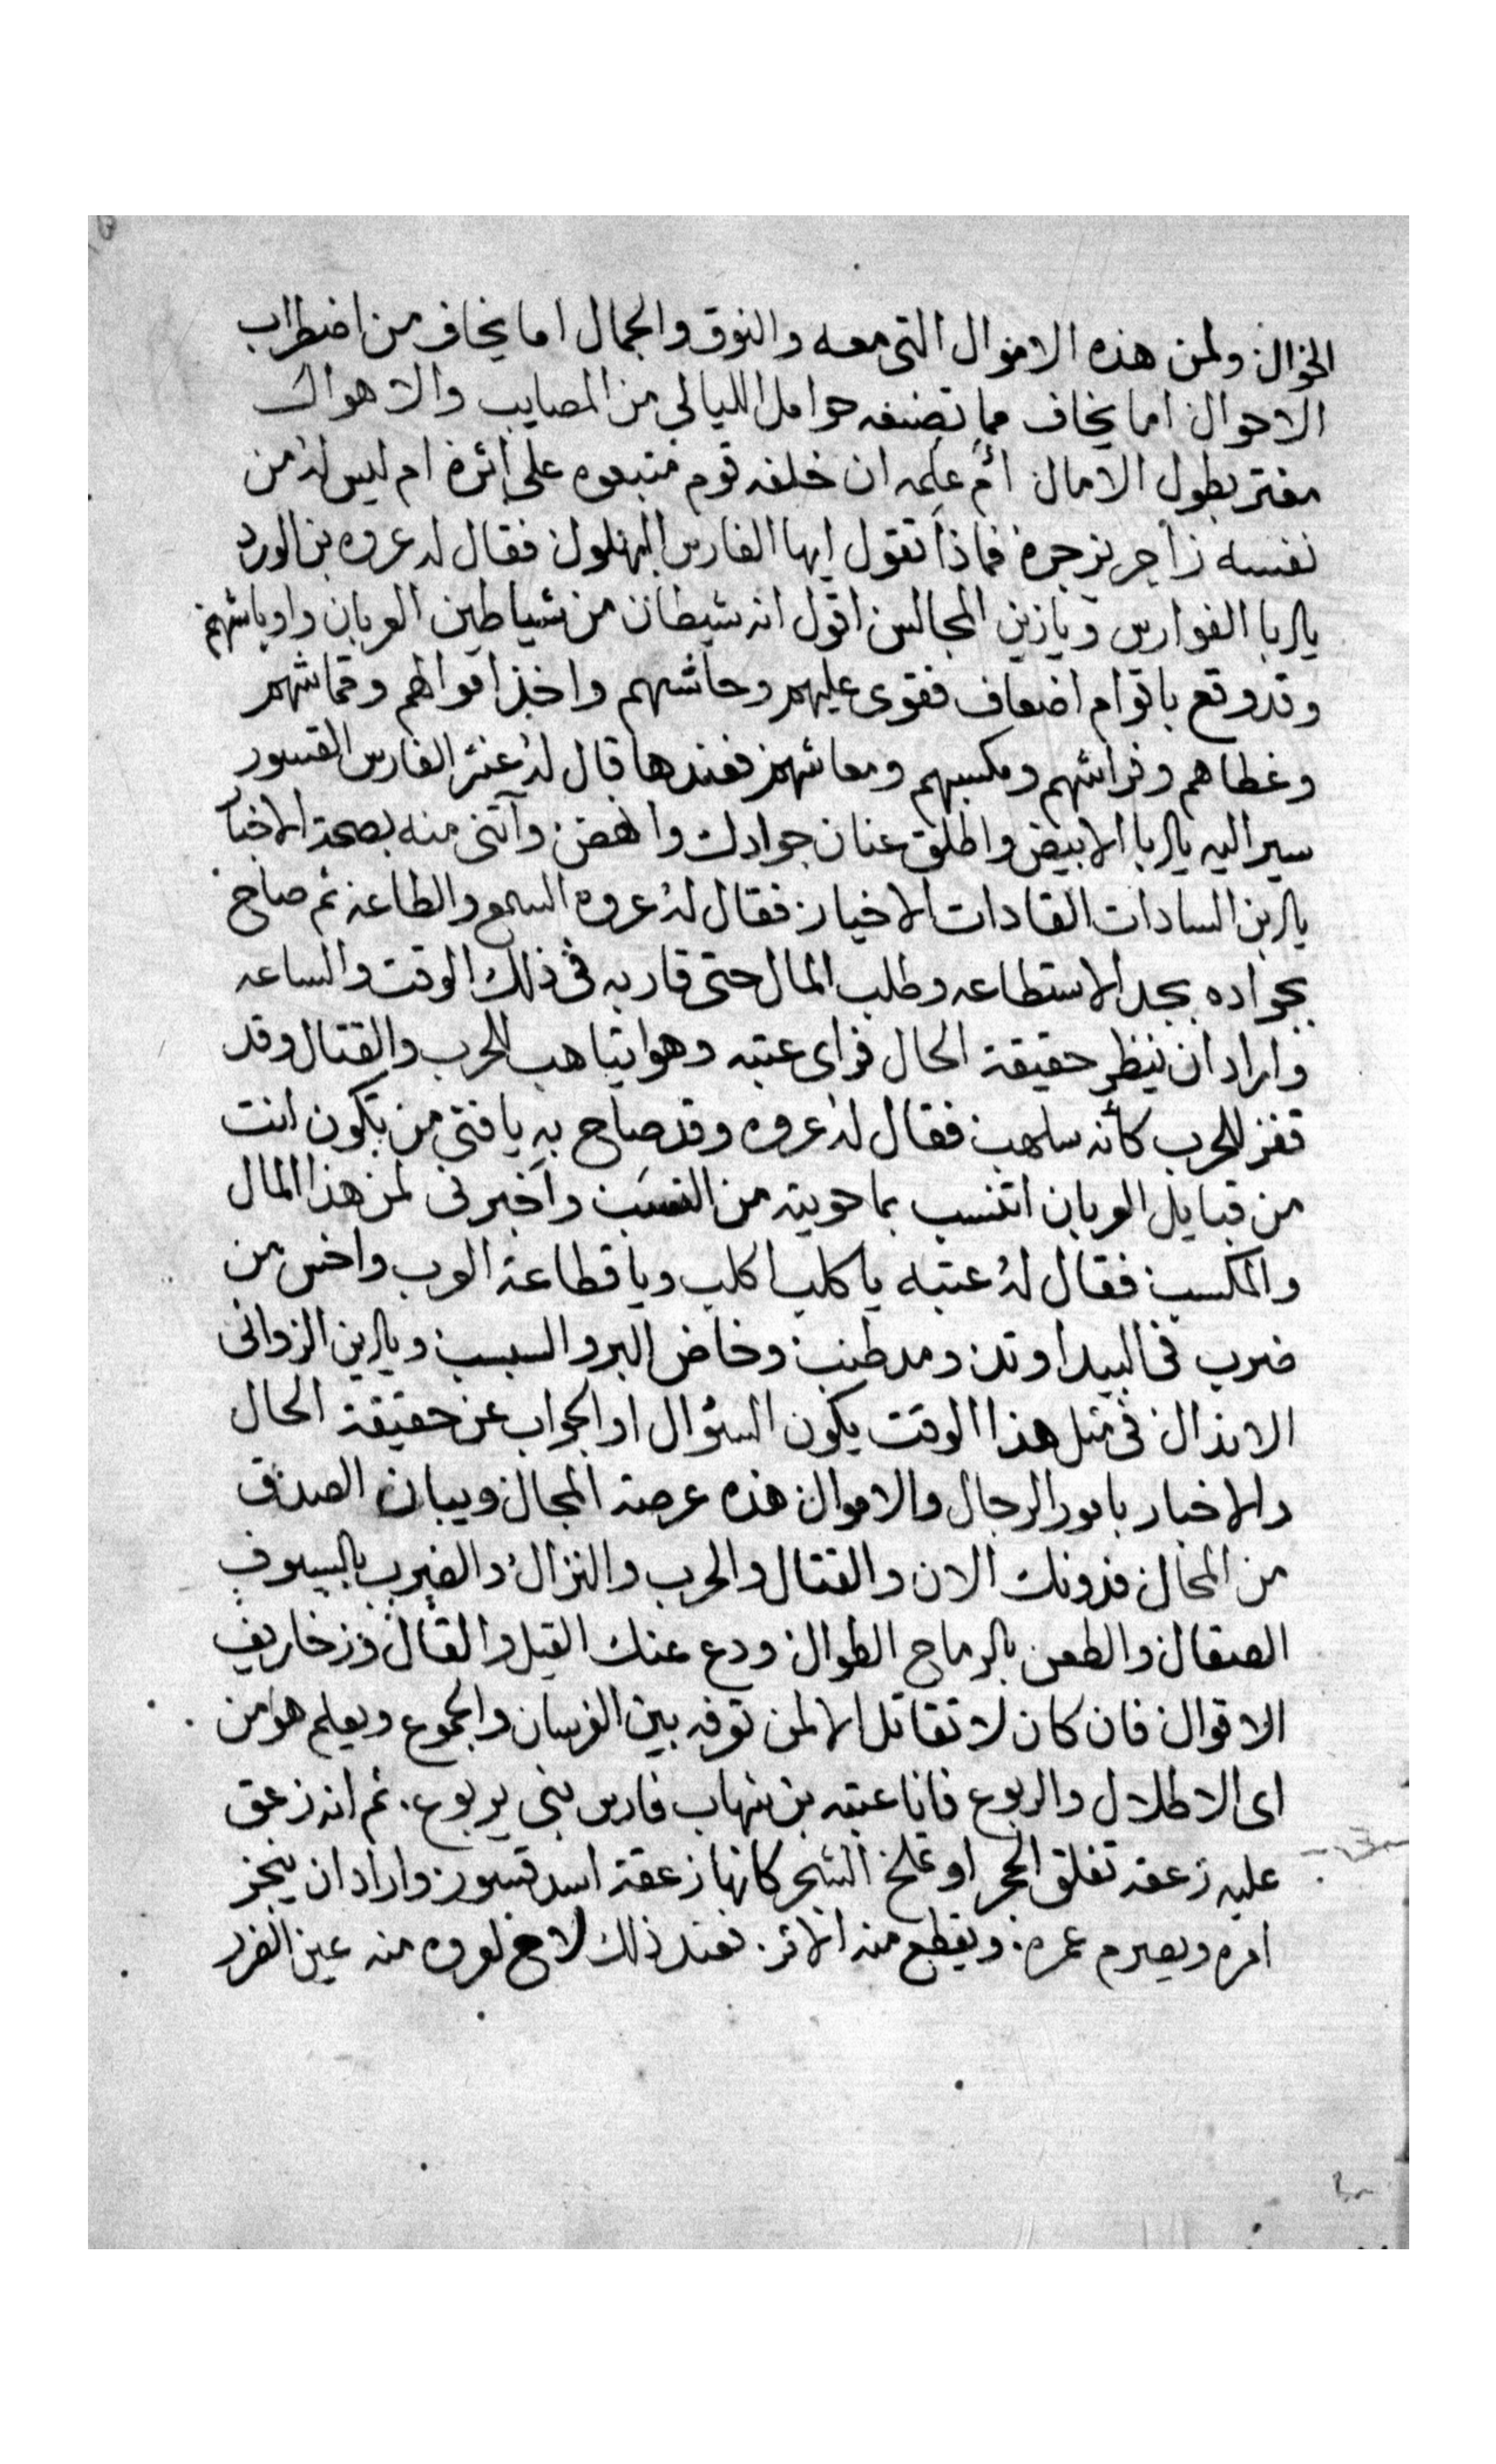 الخوال ولمن هذه الاموال التى معه والنوق والجمال اما يخاف من اضطراب
الاحوال اما يخاف مما تصنفه حوامل الليالى من المصايب والاهوال
مغتر بطول الامال ام علمه ان خلفه قوم متبعوه على اثره ام ليس له من
نفسه زاجر يزجره فماذا تقول ايها الفارس البهلول فقال له عروه بن الورد
يا ابا الفوارس ويا زين المجالس اقول انه شيطان من شياطين العربان واوباشهم
وقد وقع باقوام اضعاف فقوى عليهم وحاشهم واخذ اموالهم وقماشهم
وغطاهم وفراشهم ومكسبهم ومعاشهم فعندها قال له عنتر الفارس القسور
سير اليه يا ابا الابيض واطلق عنان جوادك وانهض وآتنى منه بصحة الاخبار
يا ابن السادات القادات الاخيار فقال له عروه السمع والطاعه ثم صاح
بجواده بجد الاستطاعه وطلب المال حتى قاربه فى ذلك الوقت والساعه
واراد ان ينظر حقيقة الحال فراى عتبه وهو ايتاهب للحرب والقتال وقد
قفز للحرب كأنه سلهب فقال له عروه وقد صاح به يا فتى من تكون انت
من قبايل العربان انتسب بما حويته من النسب واخبرنى لمن هذا المال
والمكسب فقال له عتبه يا كلب اكلب ويا قطاعة العرب واخس من
ضرب فى البيدا وتد ومد طنب وخاض البر والسبسب ويا ابن الزوانى
الانذال فى مثل هذا الوقت يكون السؤال او الجواب عن حقيقة الحال
والاخبار بامور الرجال والاموال هذه عرصة المجال ويبان الصدق
من المحال فدونك الان والقتال والحرب والنزال والضرب بالسيوف
الصقال والطعن بالرماح الطوال ودع عنك القيل والقال وزخاريف
الاقوال فان كان لا تقاتل الا لمن توفه بين الفرسان والجموع ويعلم هو من
اى الاطلال والربوع فانا عتبه بن شهاب فارس بنى يربوع. ثم انه زعق
عليه زعقه تفلق الحجر او تملخ الشجر كانها زعقة اسد قسور واراد ان ينجز
امره ويصرم عمره. ويقطع منه الاثر. فعند ذلك لاح لعروه منه عين الغدر